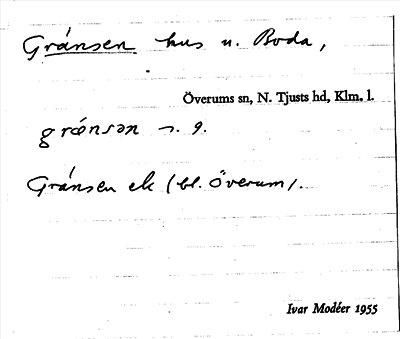 Gränsen hus u. Boda,
Överums sn, N. Tjusts hd, Klm. l.
grǽnsən n. g.
Gränsen ek (bl. Överum).
Ivar Modéer 1955